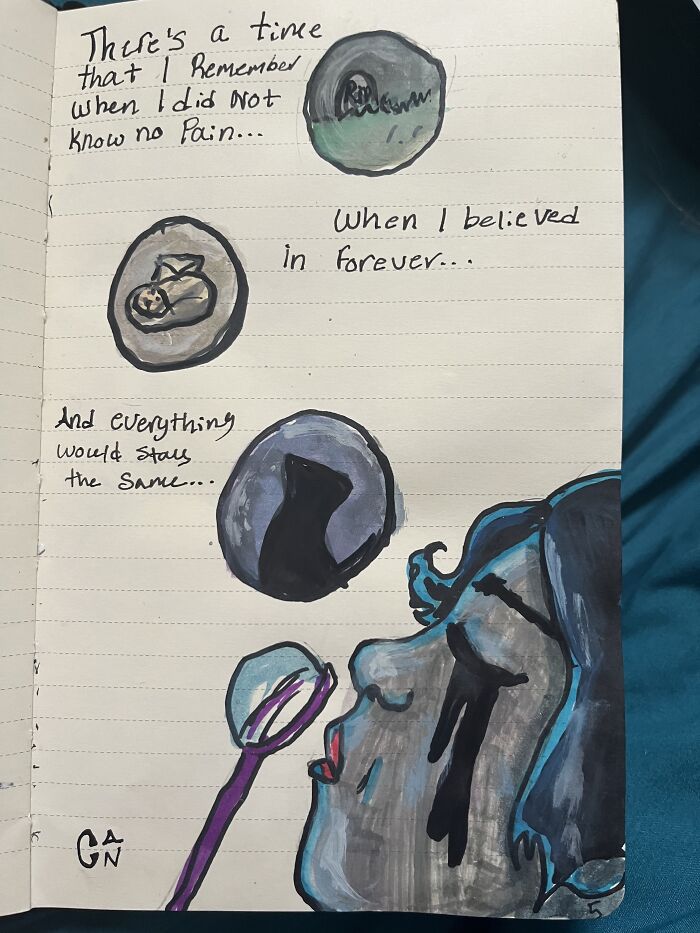 There's a time
that I Remember
when I did Not
Know no Pain...
RIP
When I believed
in Forever...
And everything
would stay
the same...
CAN
5